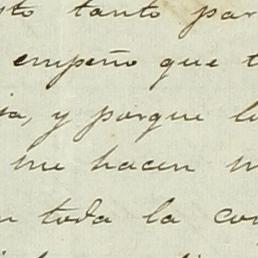 sto tanto par
empeño que t
ia, y porque l
me hacen m
n toda la co